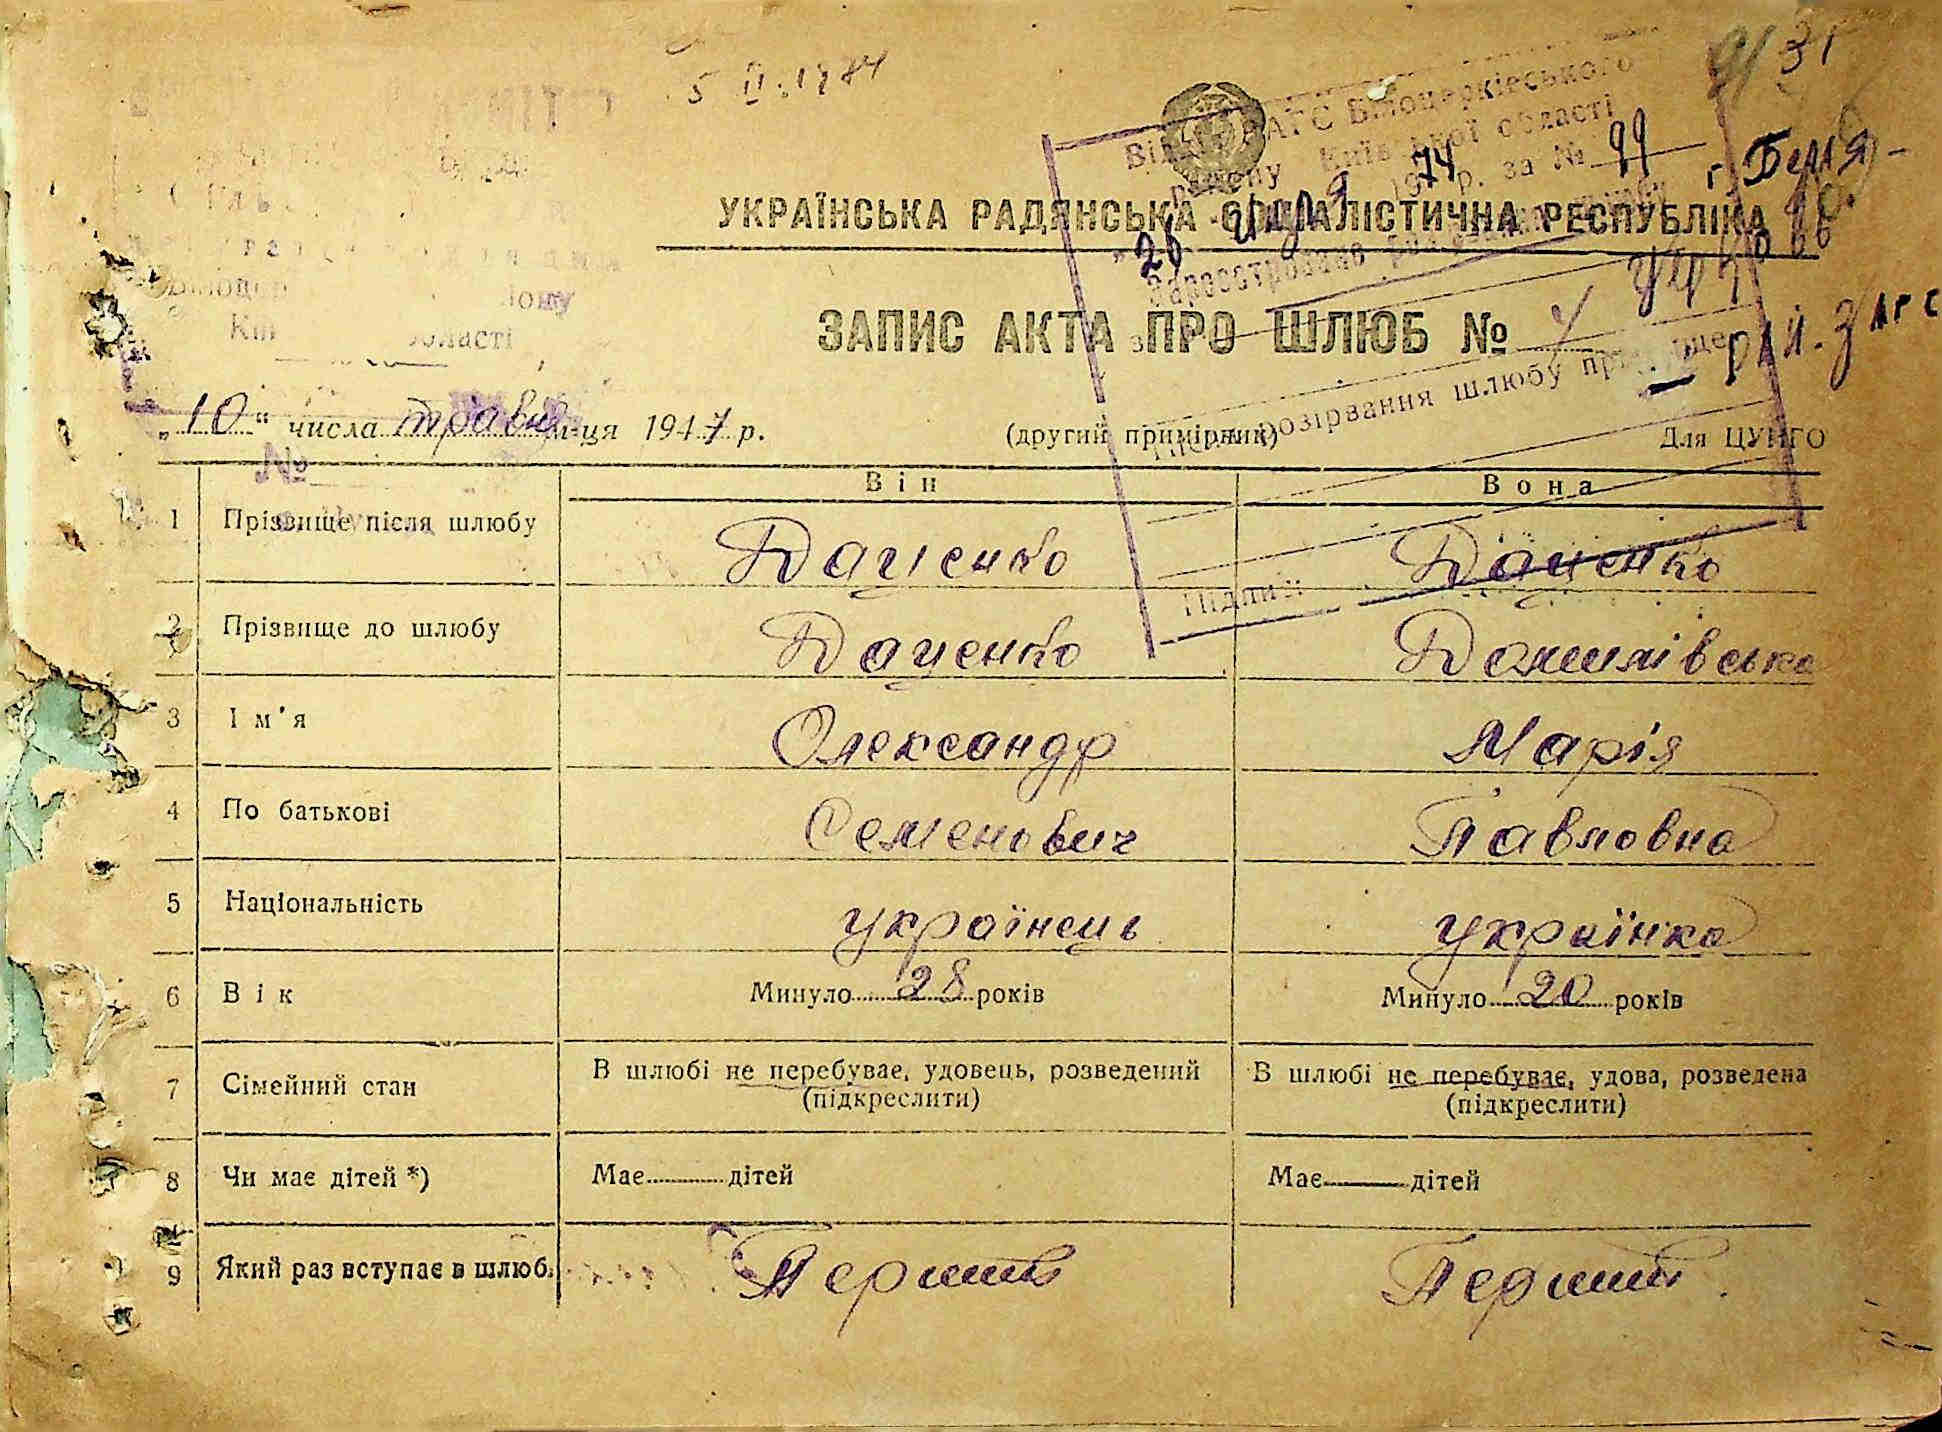 5 II. 1974
31
Відділ ЗАГС Білоцерківського
району Київської області
1974 р. за № 99
"26"
зареєстровано розірвання шлюбу
УКРАЇНСЬКА РАДЯНСЬКА СОЦІАЛІСТИЧНА РЕСПУБЛІКА
ЗАПИС АКТА ПРО ШЛЮБ № 4
рай. ЗАГС
Київської області
Після розірвання шлюбу прізвище
"10" числа травня м-ця 1947 р.
(другий примірник)
Для ЦУНГО
№
Він
Вона
1 Прізвище після шлюбу Даценко Даценко
Підпис
2 Прізвище до шлюбу Даценко
3 Ім'я Олександр Марія
4 По батькові Семенович Павловна
5 Національність українець українка
6 Вік Минуло 28 років Минуло 20 років
7 Сімейний стан В шлюбі не перебуває, удовець, розведений В шлюбі не перебуває, удова, розведена
(підкреслити) (підкреслити)
8 Чи має дітей *) Має дітей Має — дітей
9 Який раз вступає в шлюб. Перший Перший